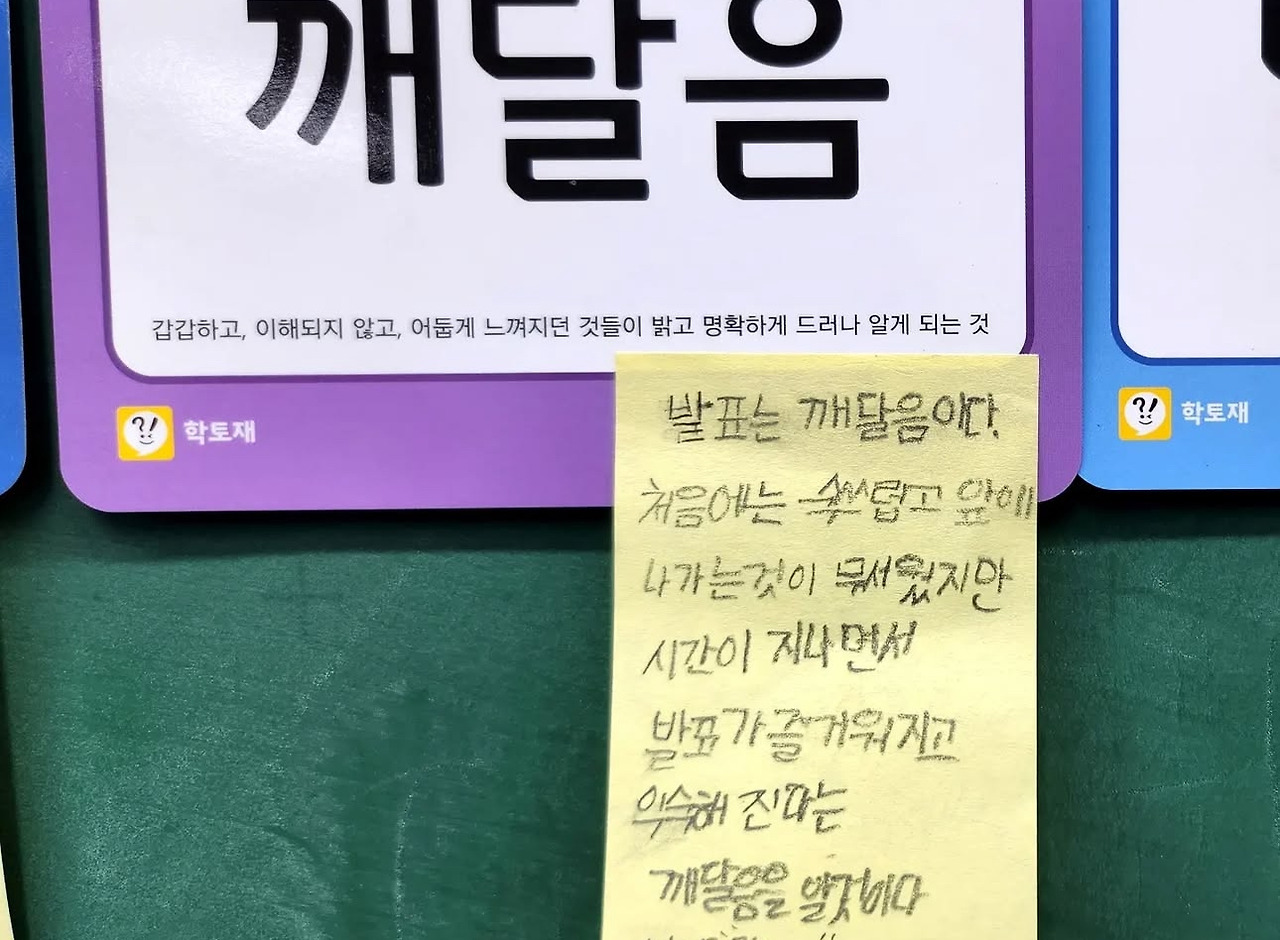 깨달음
갑갑하고, 이해되지 않고, 어둡게 느껴지던 것들이 밝고 명확하게 드러나 알게 되는 것
?!
학토재
?!
학토재
발표는 깨달음이다.
처음에는 쑥쓰럽고 앞에
나가는것이 무서웠지만
시간이 지나면서
발표가 즐거워지고
익숙해 진다는
깨달음을 알것이다